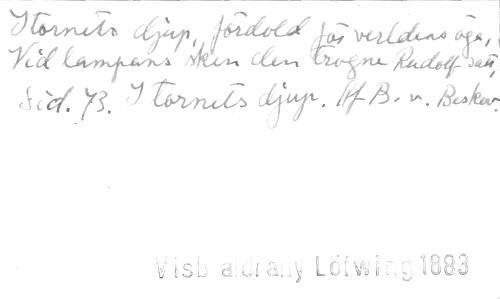 I tornets djup, fördold för verldens öga,
Vid lampans sken den trogne Rudolf satt,
Sid. 73. I tornets djup. Af B. v. Beskow.
Visb aldrally Löfwing 1883